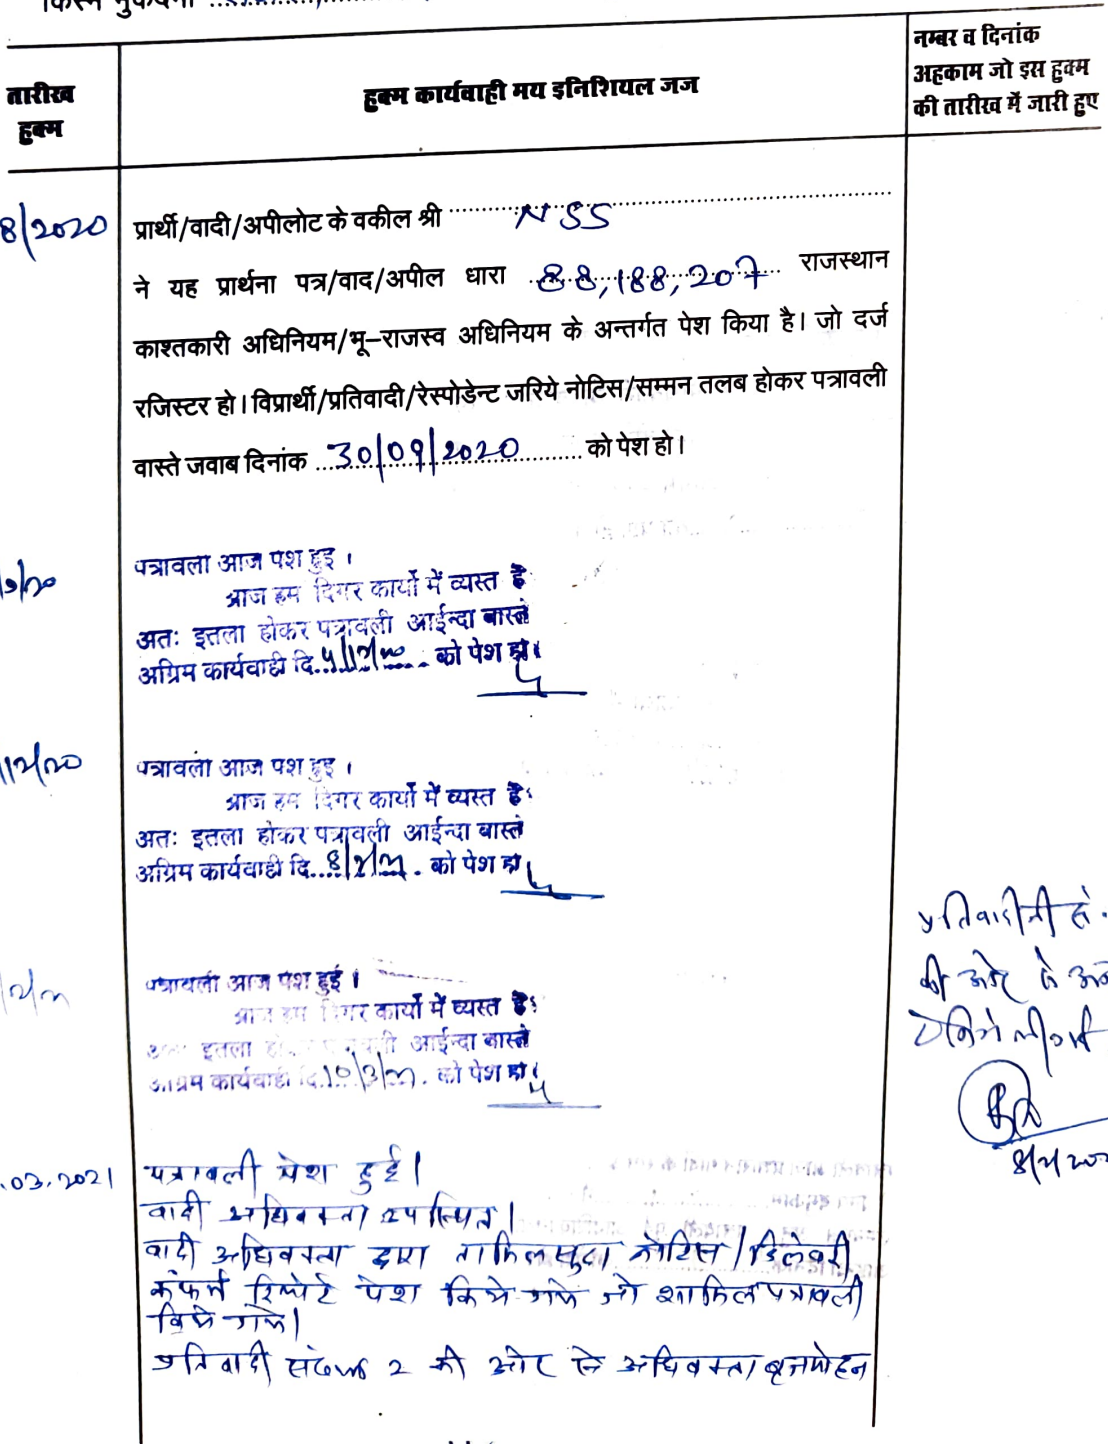 किस्म मुकदमा
तारीख
हुक्म
हुक्म कार्यवाही मय इनिशियल जज
नम्बर व दिनांक
अहकाम जो इस हुक्म
की तारीख में जारी हुए
8/2020
प्रार्थी/वादी/अपीलोट के वकील श्री NSS
ने यह प्रार्थना पत्र/वाद/अपील धारा 88,188,207 राजस्थान
काश्तकारी अधिनियम/भू–राजस्व अधिनियम के अन्तर्गत पेश किया है। जो दर्ज
रजिस्टर हो। विप्रार्थी/प्रतिवादी/रेस्पोडेन्ट जरिये नोटिस/सम्मन तलब होकर पत्रावली
वास्ते जवाब दिनांक 30/09/2020 को पेश हो।
पत्रावली आज पेश हुई ।
आज हम दिगर कार्यो में व्यस्त है
अतः इतला होकर पत्रावली आईन्दा वास्ते
अग्रिम कार्यवाही दि. को पेश हो।
12/20
पत्रावली आज पेश हुई ।
आज हम दिगर कार्यो में व्यस्त है
अतः इतला होकर पत्रावली आईन्दा वास्ते
अग्रिम कार्यवाही दि. 8/2/21 को पेश हो
पत्रावली आज पेश हुई ।
आज हम दिगर कार्यो में व्यस्त है
इतला होकर पत्रावली आईन्दा वास्ते
अग्रिम कार्यवाही दि. 10/3/21 को पेश हो
प्रतिवादी सं.
की ओर से
.03.2021
पत्रावली पेश हुई।
वादी अधिवक्ता उपस्थित।
वादी अधिवक्ता द्वारा तामिलसुदा नोटिस/डिलेवरी
कंफर्म रिपोर्ट पेश किये गये जो शामिल पत्रावली
किये गये।
प्रतिवादी संख्या 2 की ओर से अधिवक्ता बृजमोहन